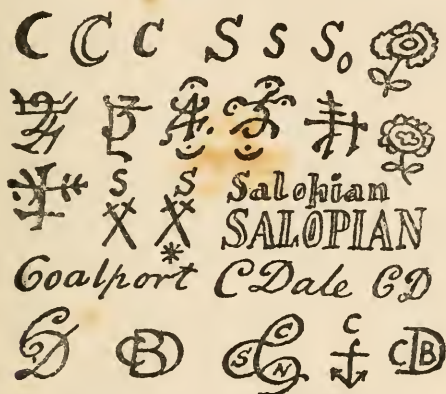 C C C S S So
S S Salopian
X X SALOPIAN
Coalport CDale CD
CD CBD S C N C CDB